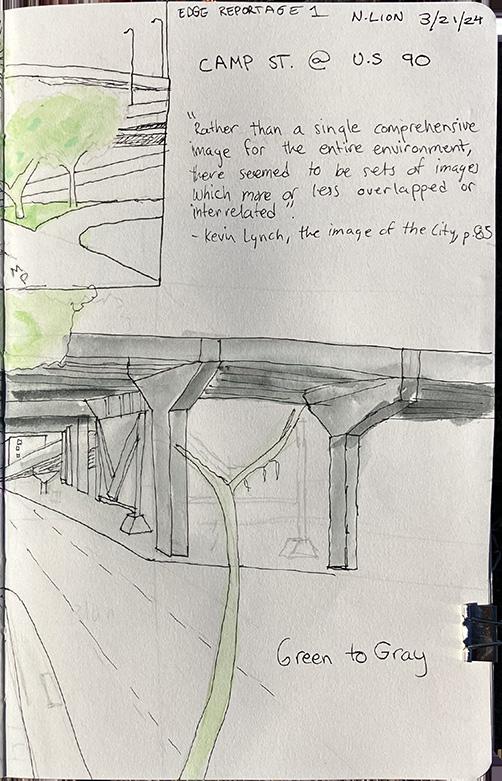 EDGE REPORTAGE 1 N.LION 3/21/24
CAMP ST. @ U.S 90
"Rather than a single comprehensive
image for the entire environment,
there seemed to be sets of images
which more or less overlapped or
interrelated"
- Kevin Lynch, the image of the City, p.85
Green to Gray